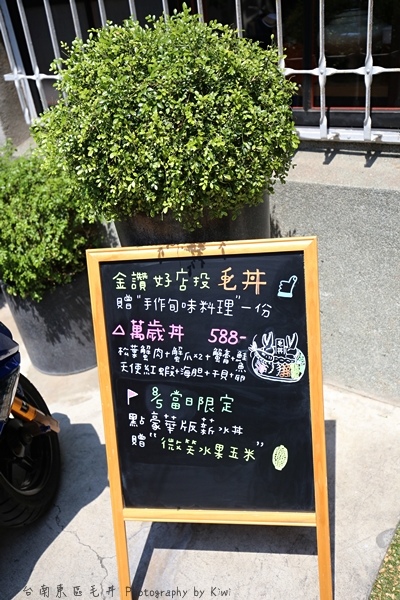 金讚 好店投 毛丼
贈"手作旬味料理"一份
△萬歲丼 588-
松葉蟹肉+蟹爪x2+蟹膏+鮭魚
天使紅蝦+海胆+干貝+卵
8/8 當日限定
點豪華版薪水丼
贈"微笑水果玉米"
台南東區毛丼 Photography by Kiwi